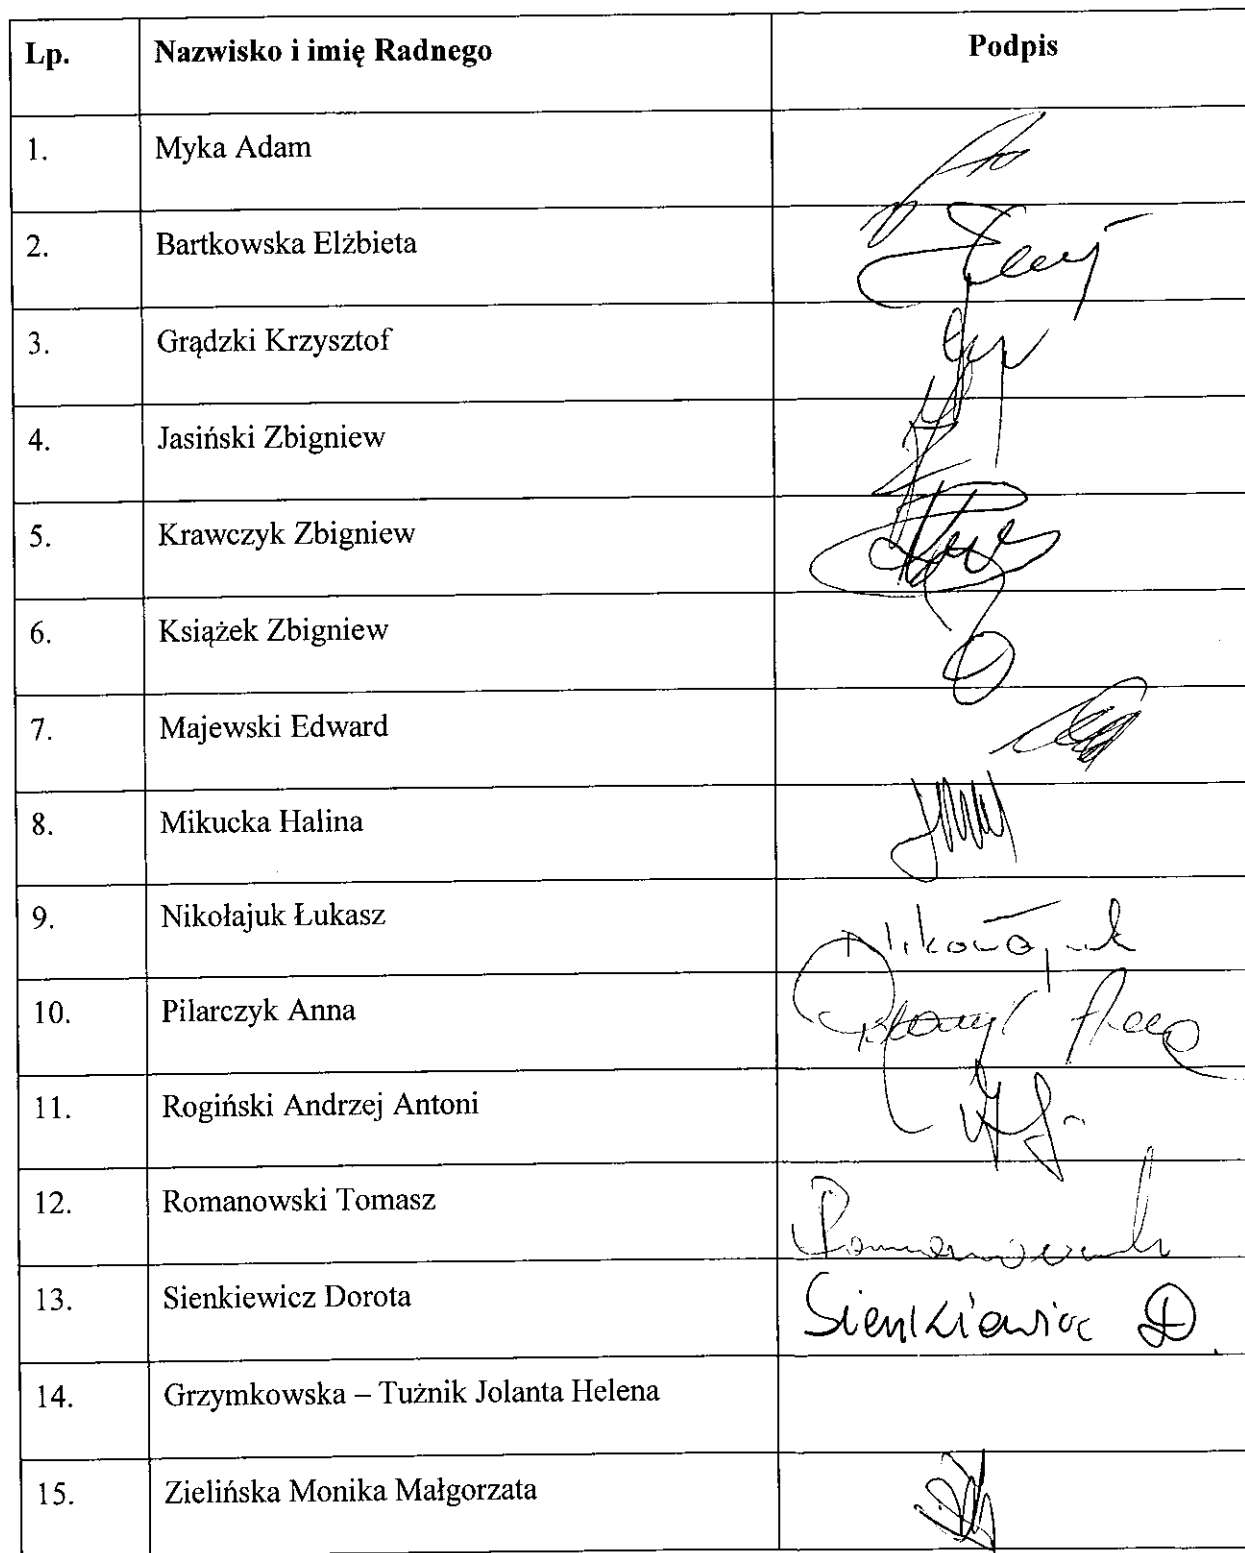 Lp. Nazwisko i imię Radnego Podpis
1. Myka Adam
2. Bartkowska Elżbieta
3. Grądzki Krzysztof
4. Jasiński Zbigniew
5. Krawczyk Zbigniew
6. Książek Zbigniew
7. Majewski Edward
8. Mikucka Halina
9. Nikołajuk Łukasz Nikołajuk
10. Pilarczyk Anna
11. Rogiński Andrzej Antoni
12. Romanowski Tomasz Romanowski
13. Sienkiewicz Dorota Sienkiewicz D.
14. Grzymkowska – Tużnik Jolanta Helena
15. Zielińska Monika Małgorzata